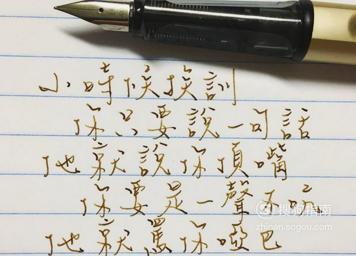 小時候挨訓
你只要說一句話
他就說你頂嘴
你要是一聲不吭
他就罵你啞巴
搜狐号